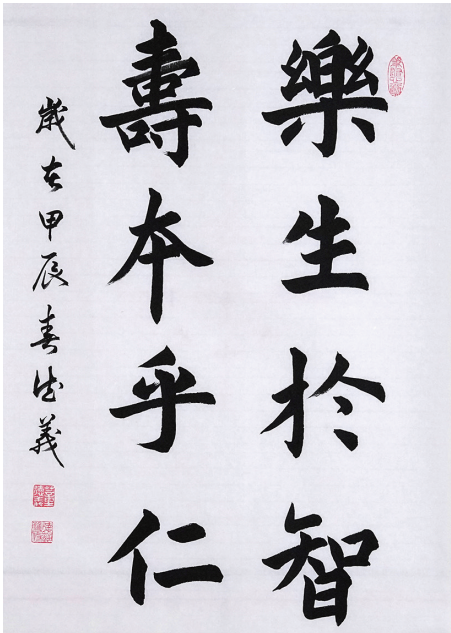 樂生於智
壽本乎仁
歲在甲辰春德義